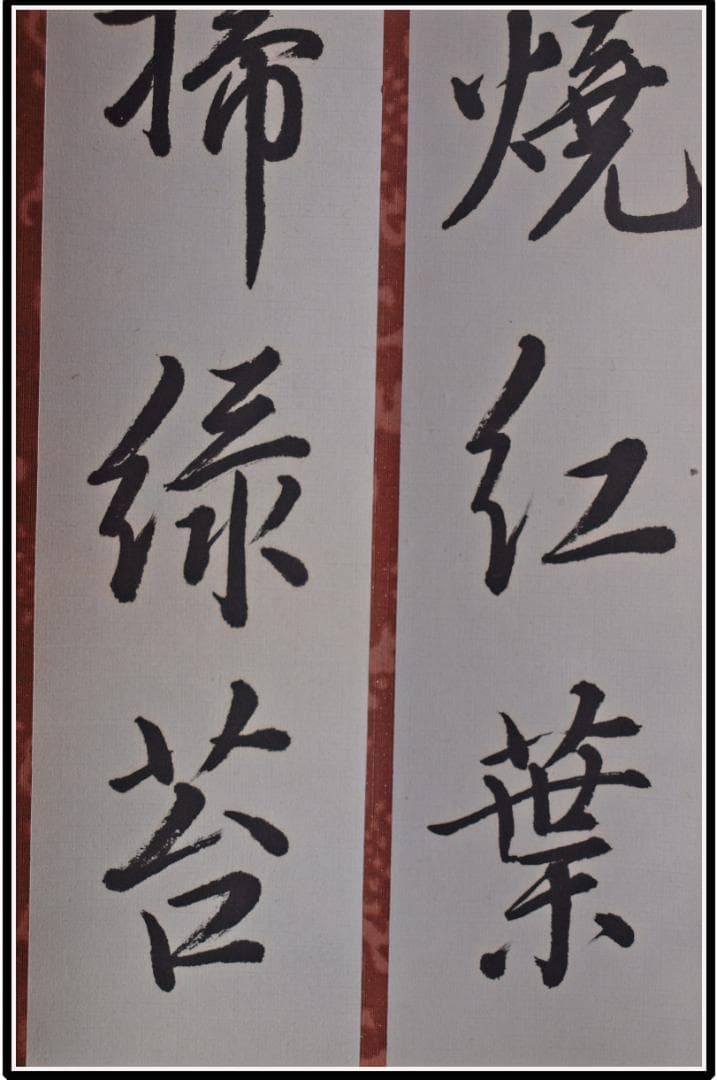 燒紅葉
掃綠苔